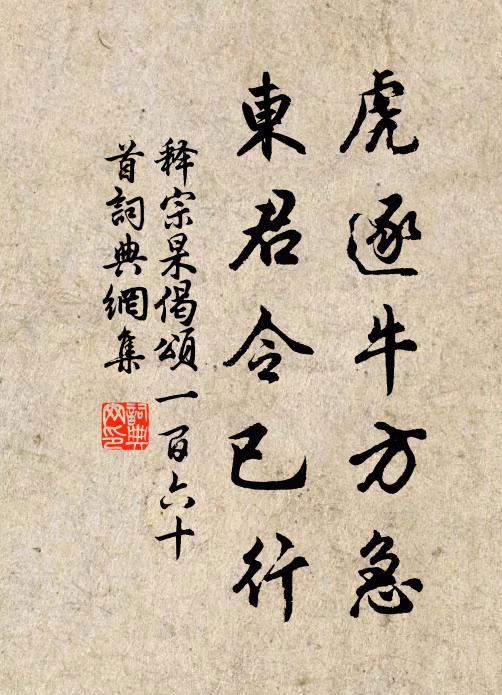 虎逐牛方急
東君令已行
释宗杲偈頌一百六十
首詞典網集
詞典
网印